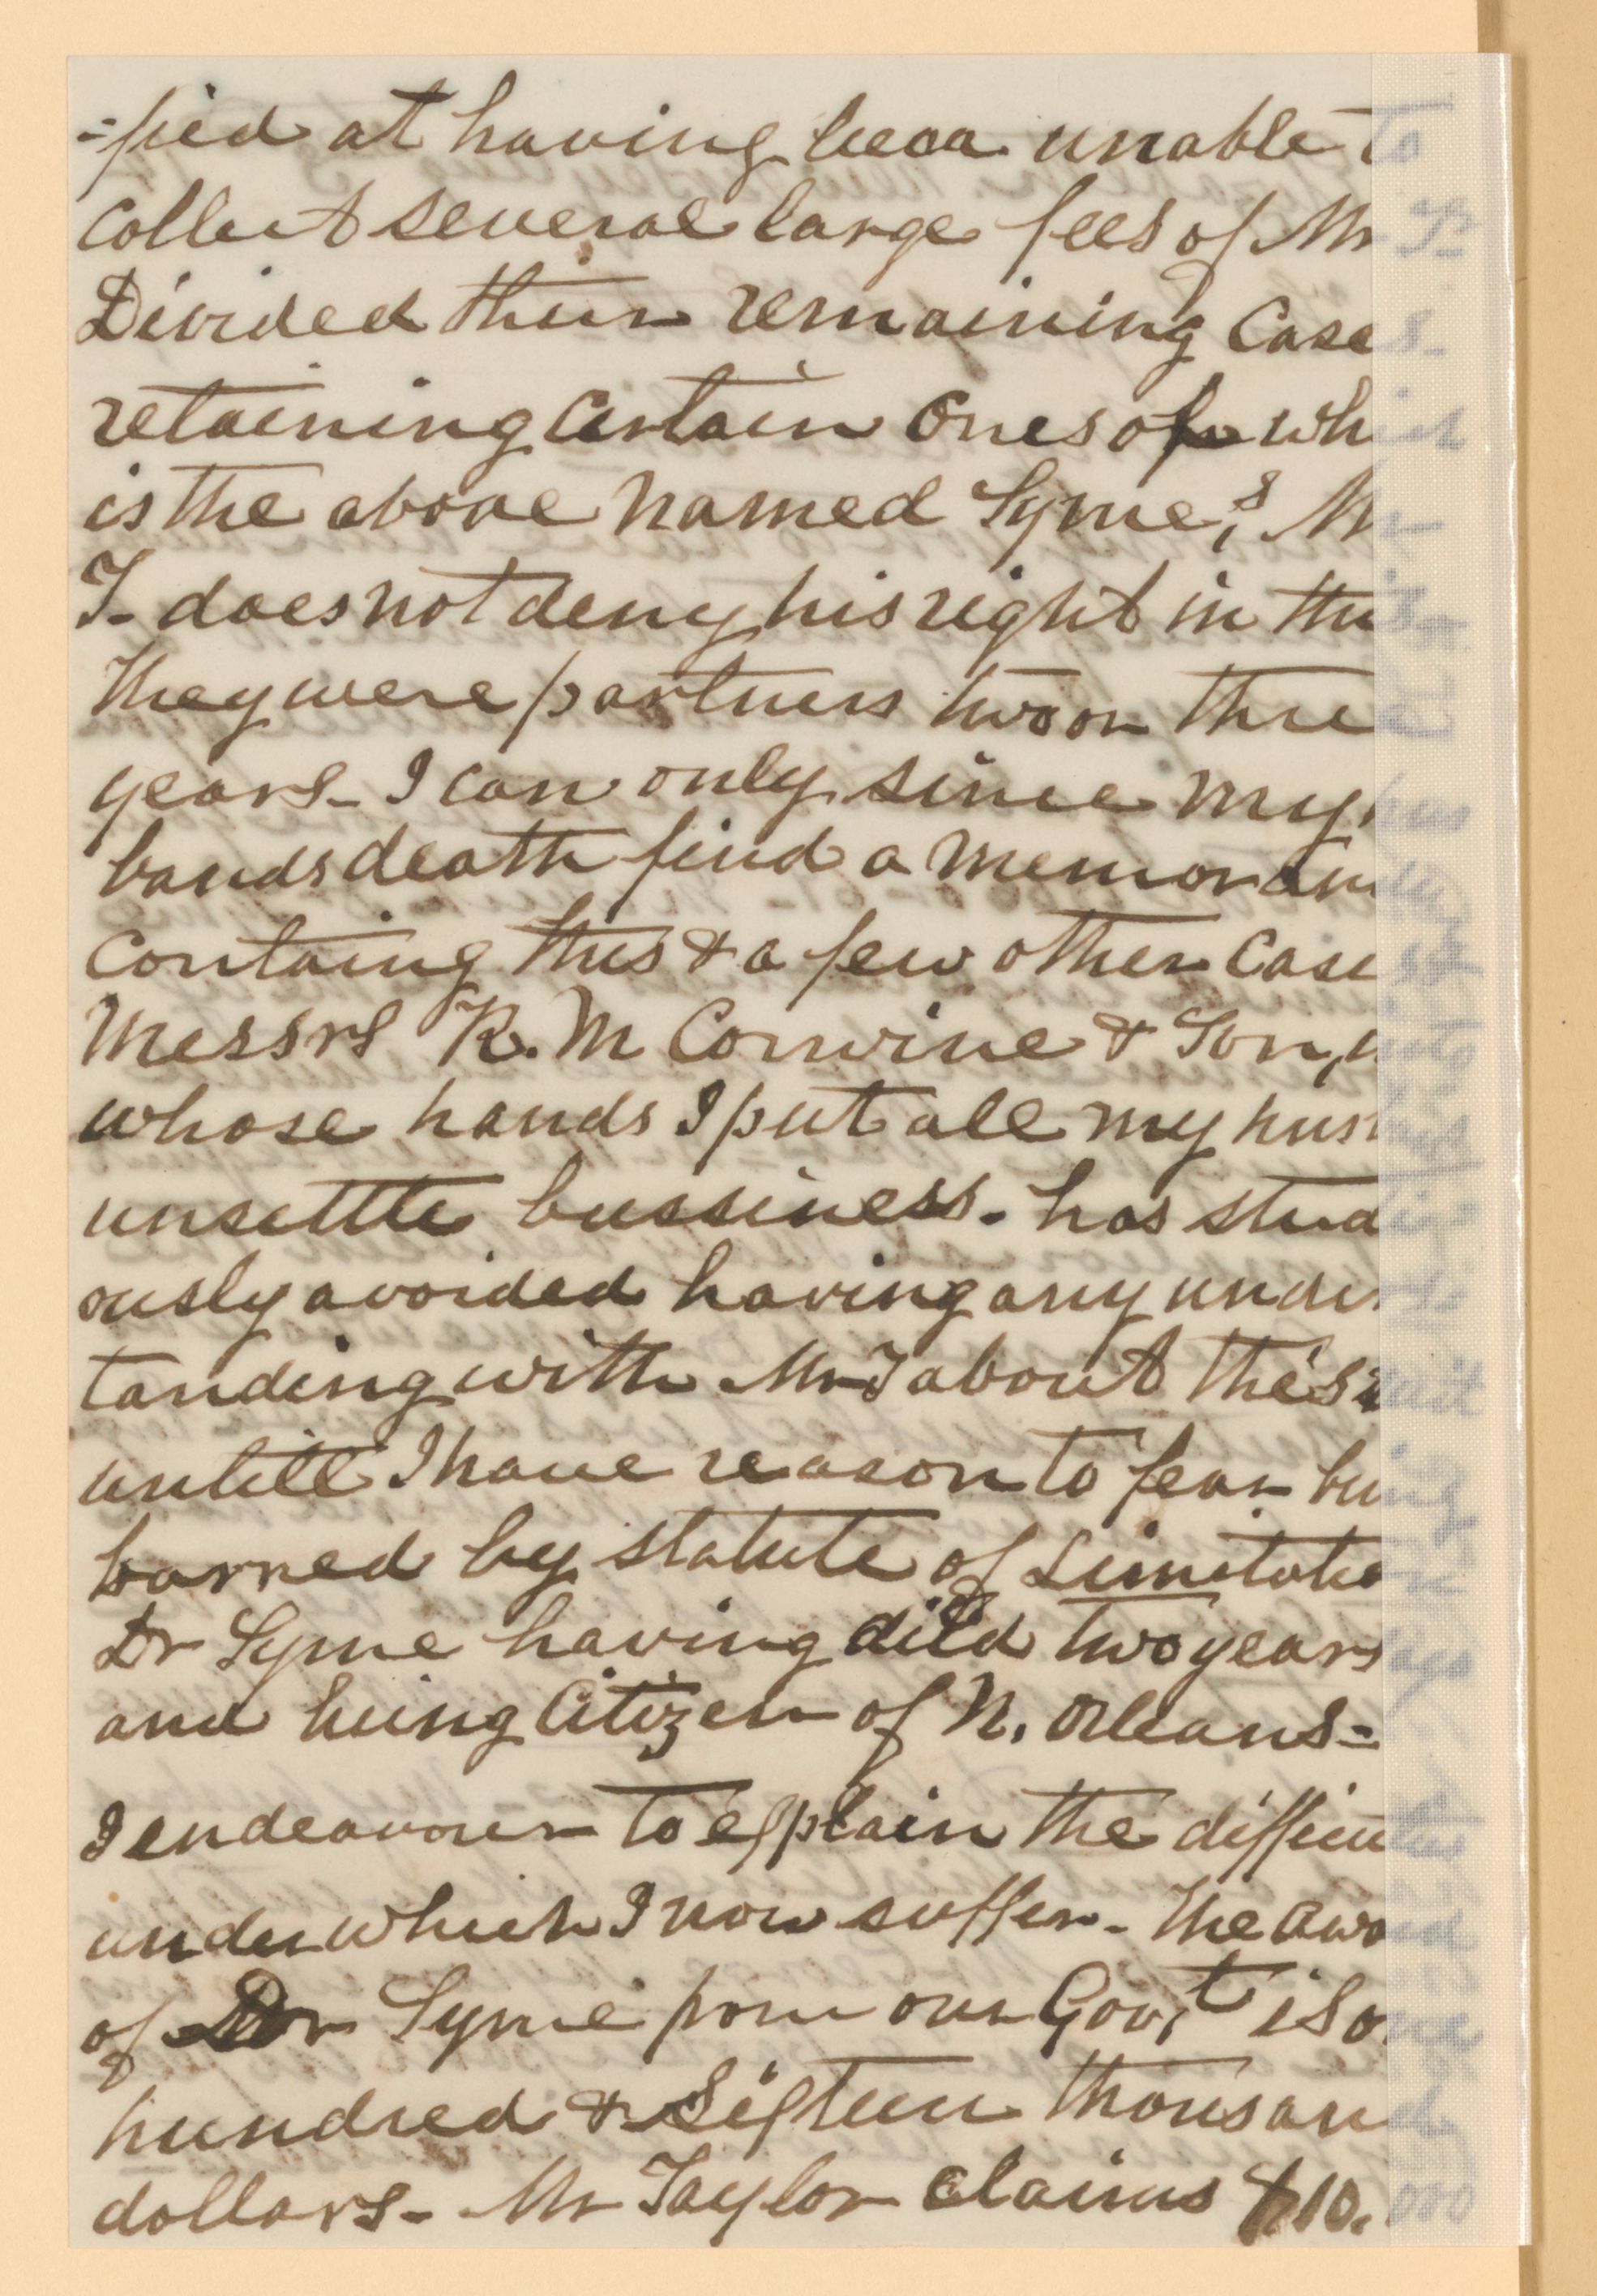 -fied at having been unable to
collect several large fees of Mr T-
Divided their remaining Cases-
retaining Certain Ones of which
is the above named Syme,s Mr
T- does not deny his right in this-
They were partners two or three
years- I can only since my hus
bands death find a memorandum
Containg this & a few other Cases
Messrs R. M Corwine & Son, into
whose hands I put all my husbands
unsettle bussiness- has studi
ously avoided having any unders
tanding with Mr T about the suit
untill I have reason to fear being
barred by statute of Limitation
Dr Syme having died two years ago
and being Citizen of N. Orleans=
I endeavour to explain the difficulties
under which I now suffer- The award
of Dr Syme from our Gov,t is one
hundred & Sixteen thousand
dollars- Mr Taylor claims $10.000